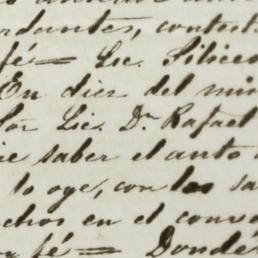 rdantes, contest
fé = Lic. Silice
En diez del mis
Sor Lic. Dn. Rafael
ie saber el auto
lo oyo, con los sa
chos en el conve
fé = Donde